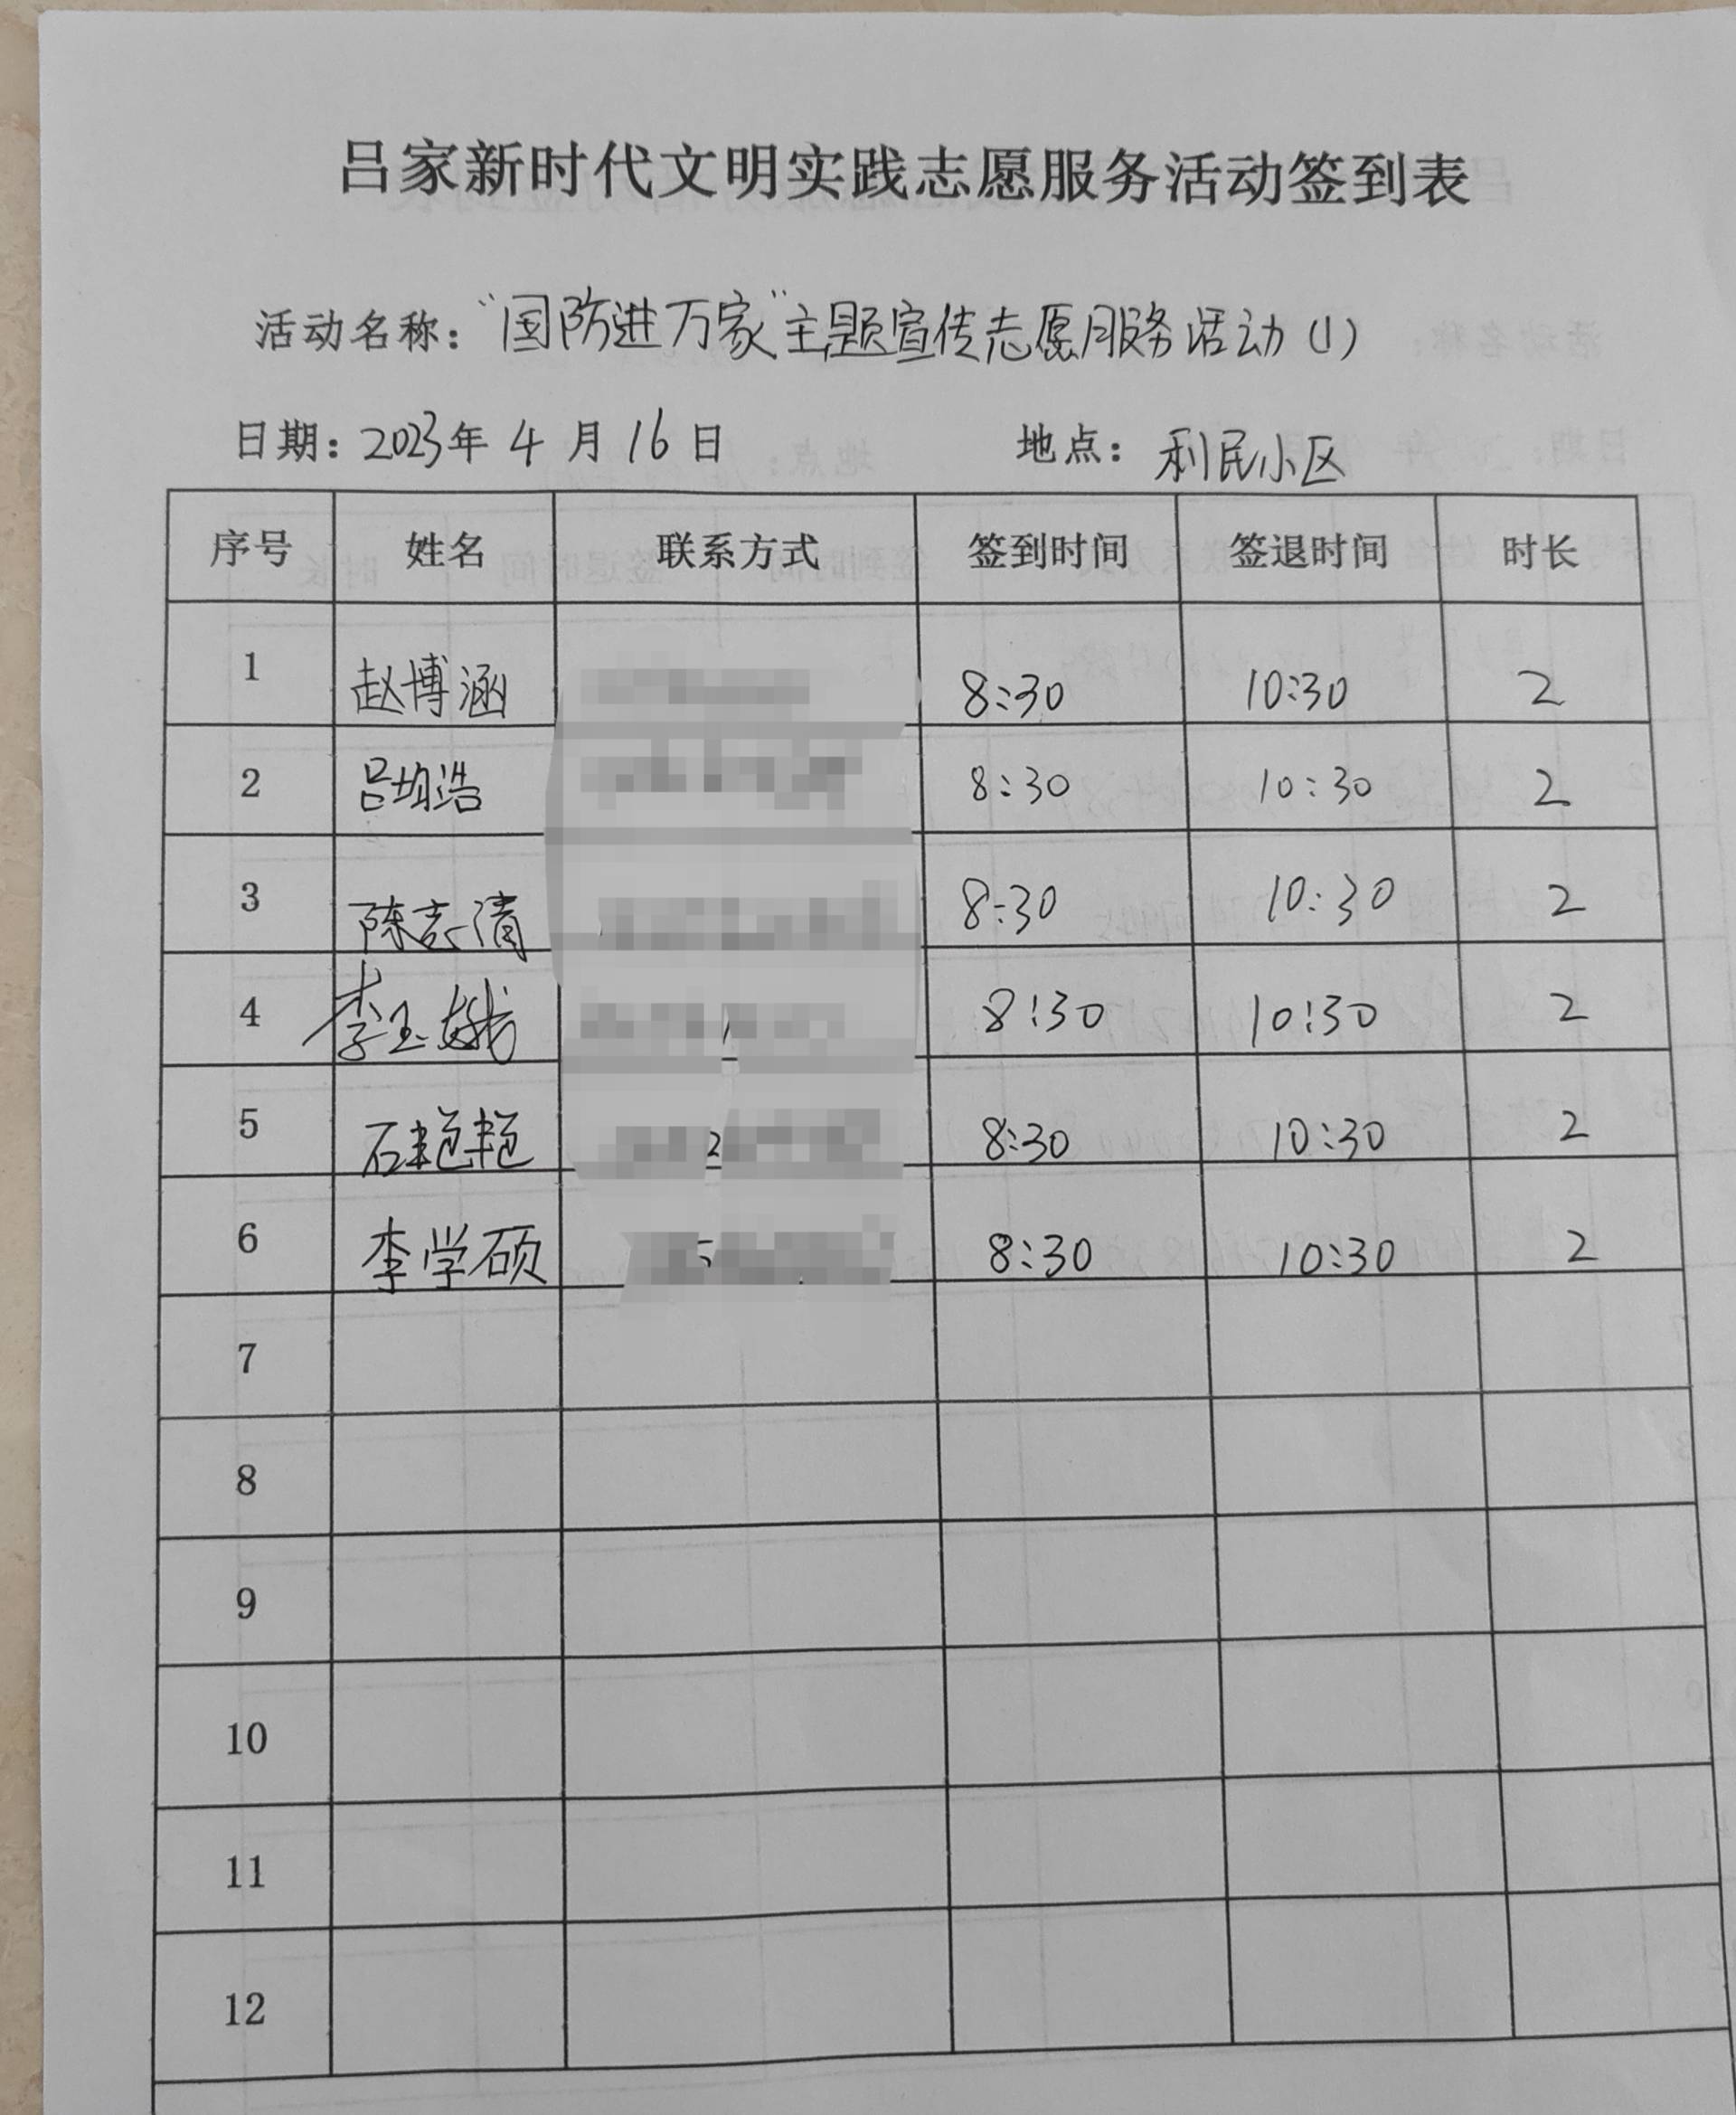 吕家新时代文明实践志愿服务活动签到表
活动名称："国防进万家"主题宣传志愿服务活动(1)
日期：2023年 4 月 16 日 地点：利民小区
序号 姓名 联系方式 签到时间 签退时间 时长
1 赵博涵 8:30 10:30 2
2 吕均浩 8:30 10:30 2
3 陈志清 8:30 10:30 2
4 李玉娥 8:30 10:30 2
5 石艳艳 8:30 10:30 2
6 李学硕 8:30 10:30 2
7
8
9
10
11
12